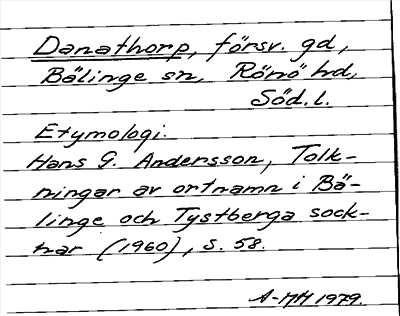 Danathorp, försv. gd,
Bälinge sn, Rönö hd,
Söd. l.
Etymologi.
Hans G. Andersson, Tolk-
ningar av ortnamn i Bä-
linge och Tystberga sock-
nar (1960), s. 58.
A-MH 1979.